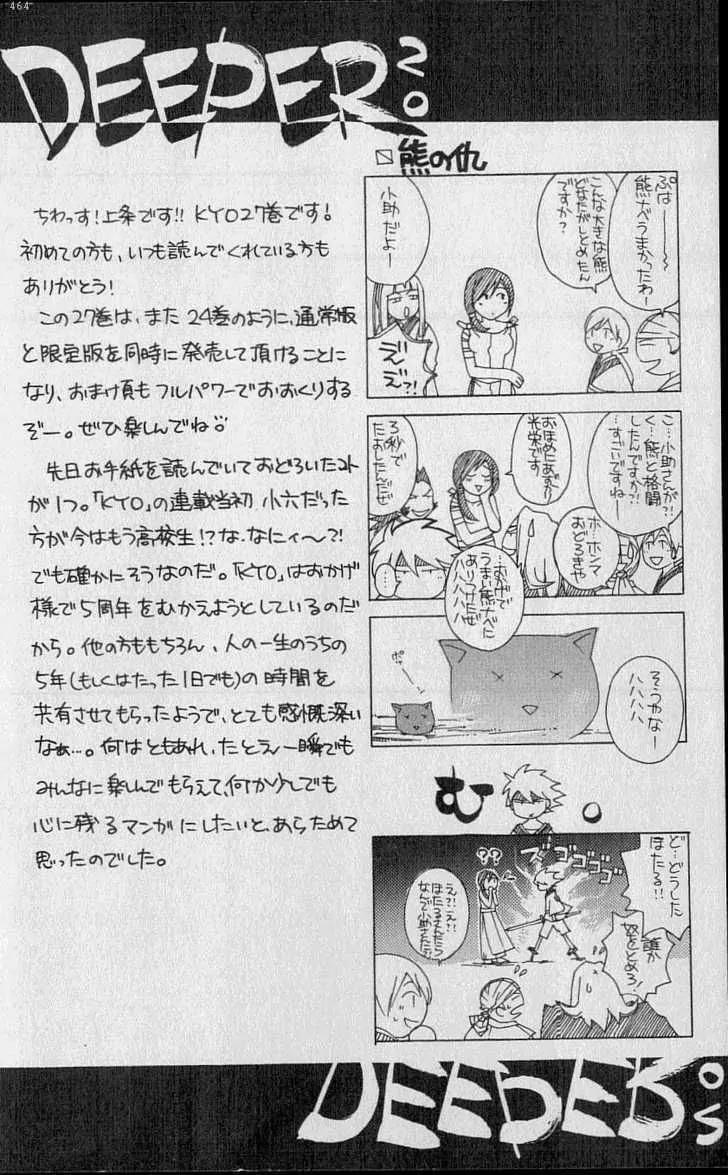 464
DEEPER
20
ちわっす!上条です!! KYO27巻です!
初めての方も、いつも読んでくれている方も
ありがとう!
この27巻は、また24巻のように、通常版
と限定版を同時に発売して頂けることに
なり、おまけ頁もフルパワーでおおくりする
ぞー。ぜひ楽しんでね
先日お手紙を読んでいておどろいたコト
が1つ。「KYO」の連載当初 小六だった
方が今はもう高校生!?な、なにィ〜?!
でも確かにそうなのだ。「KYO」はおかげ
様で5周年をむかえようとしているのだ
から。他の方ももちろん、人の一生のうちの
5年(もしくはたった1日でも)の時間を
共有させてもらったようで、とても感慨深い
なぁ…。何はともあれ、たとえ一瞬でも
みんなに楽しんでもらえて、何か少しでも
心に残るマンガにしたいと、あらためて
思ったのでした。
熊の仇
ぷは———
熊ナベうまかったわー
こんな大きな熊
どなたがしとめたん
ですか?
小助だよー
でぇ
でぇ?!
こ…小助さんが?!
く…熊と格闘
したんですか?!
…すごいですねー
ホ…ホンマ
おどろきや
おほめにあずかり
光栄です
3秒で
たおしたんだぜ
…おかげで
うまい熊ナベに
ありつけたぜ
ハハハハ
そうやなー
ハハハハ
ポ…ン
む。
ど…どうした
ほたる!!
誰か
奴をとめろ!
ズゴゴゴゴゴ
??
え?!え?!
ほたるさんたら
なんで小助さんに?!
DEEPER